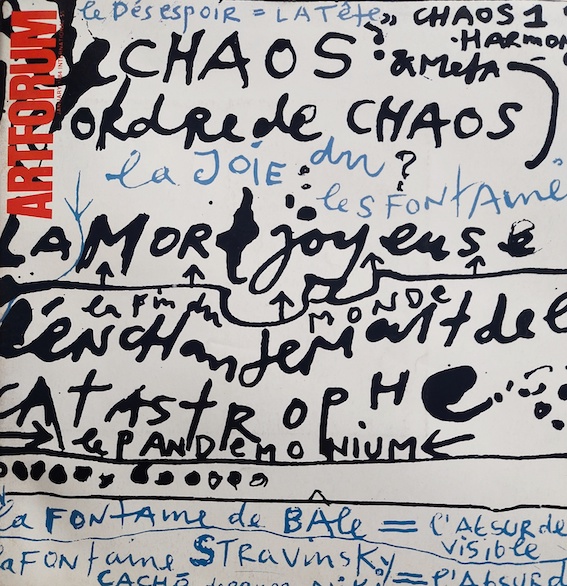 ARTFORUM
le Désespoir = LA Tête
CHAOS 1
HARMON
CHAOS
& Meta
ordre de CHAOS
la JOIE du ?
les FONTAINE
LA MORt joyeuse
la fin du MONDE
l'ENCHANtement de l
CAtAStROPHe
le PANDEMONIUM
la FONtaine de BÂle = l'AbSURde
visible
la FONtaine STRavinsKy = l'AbSURd
CACHÉ